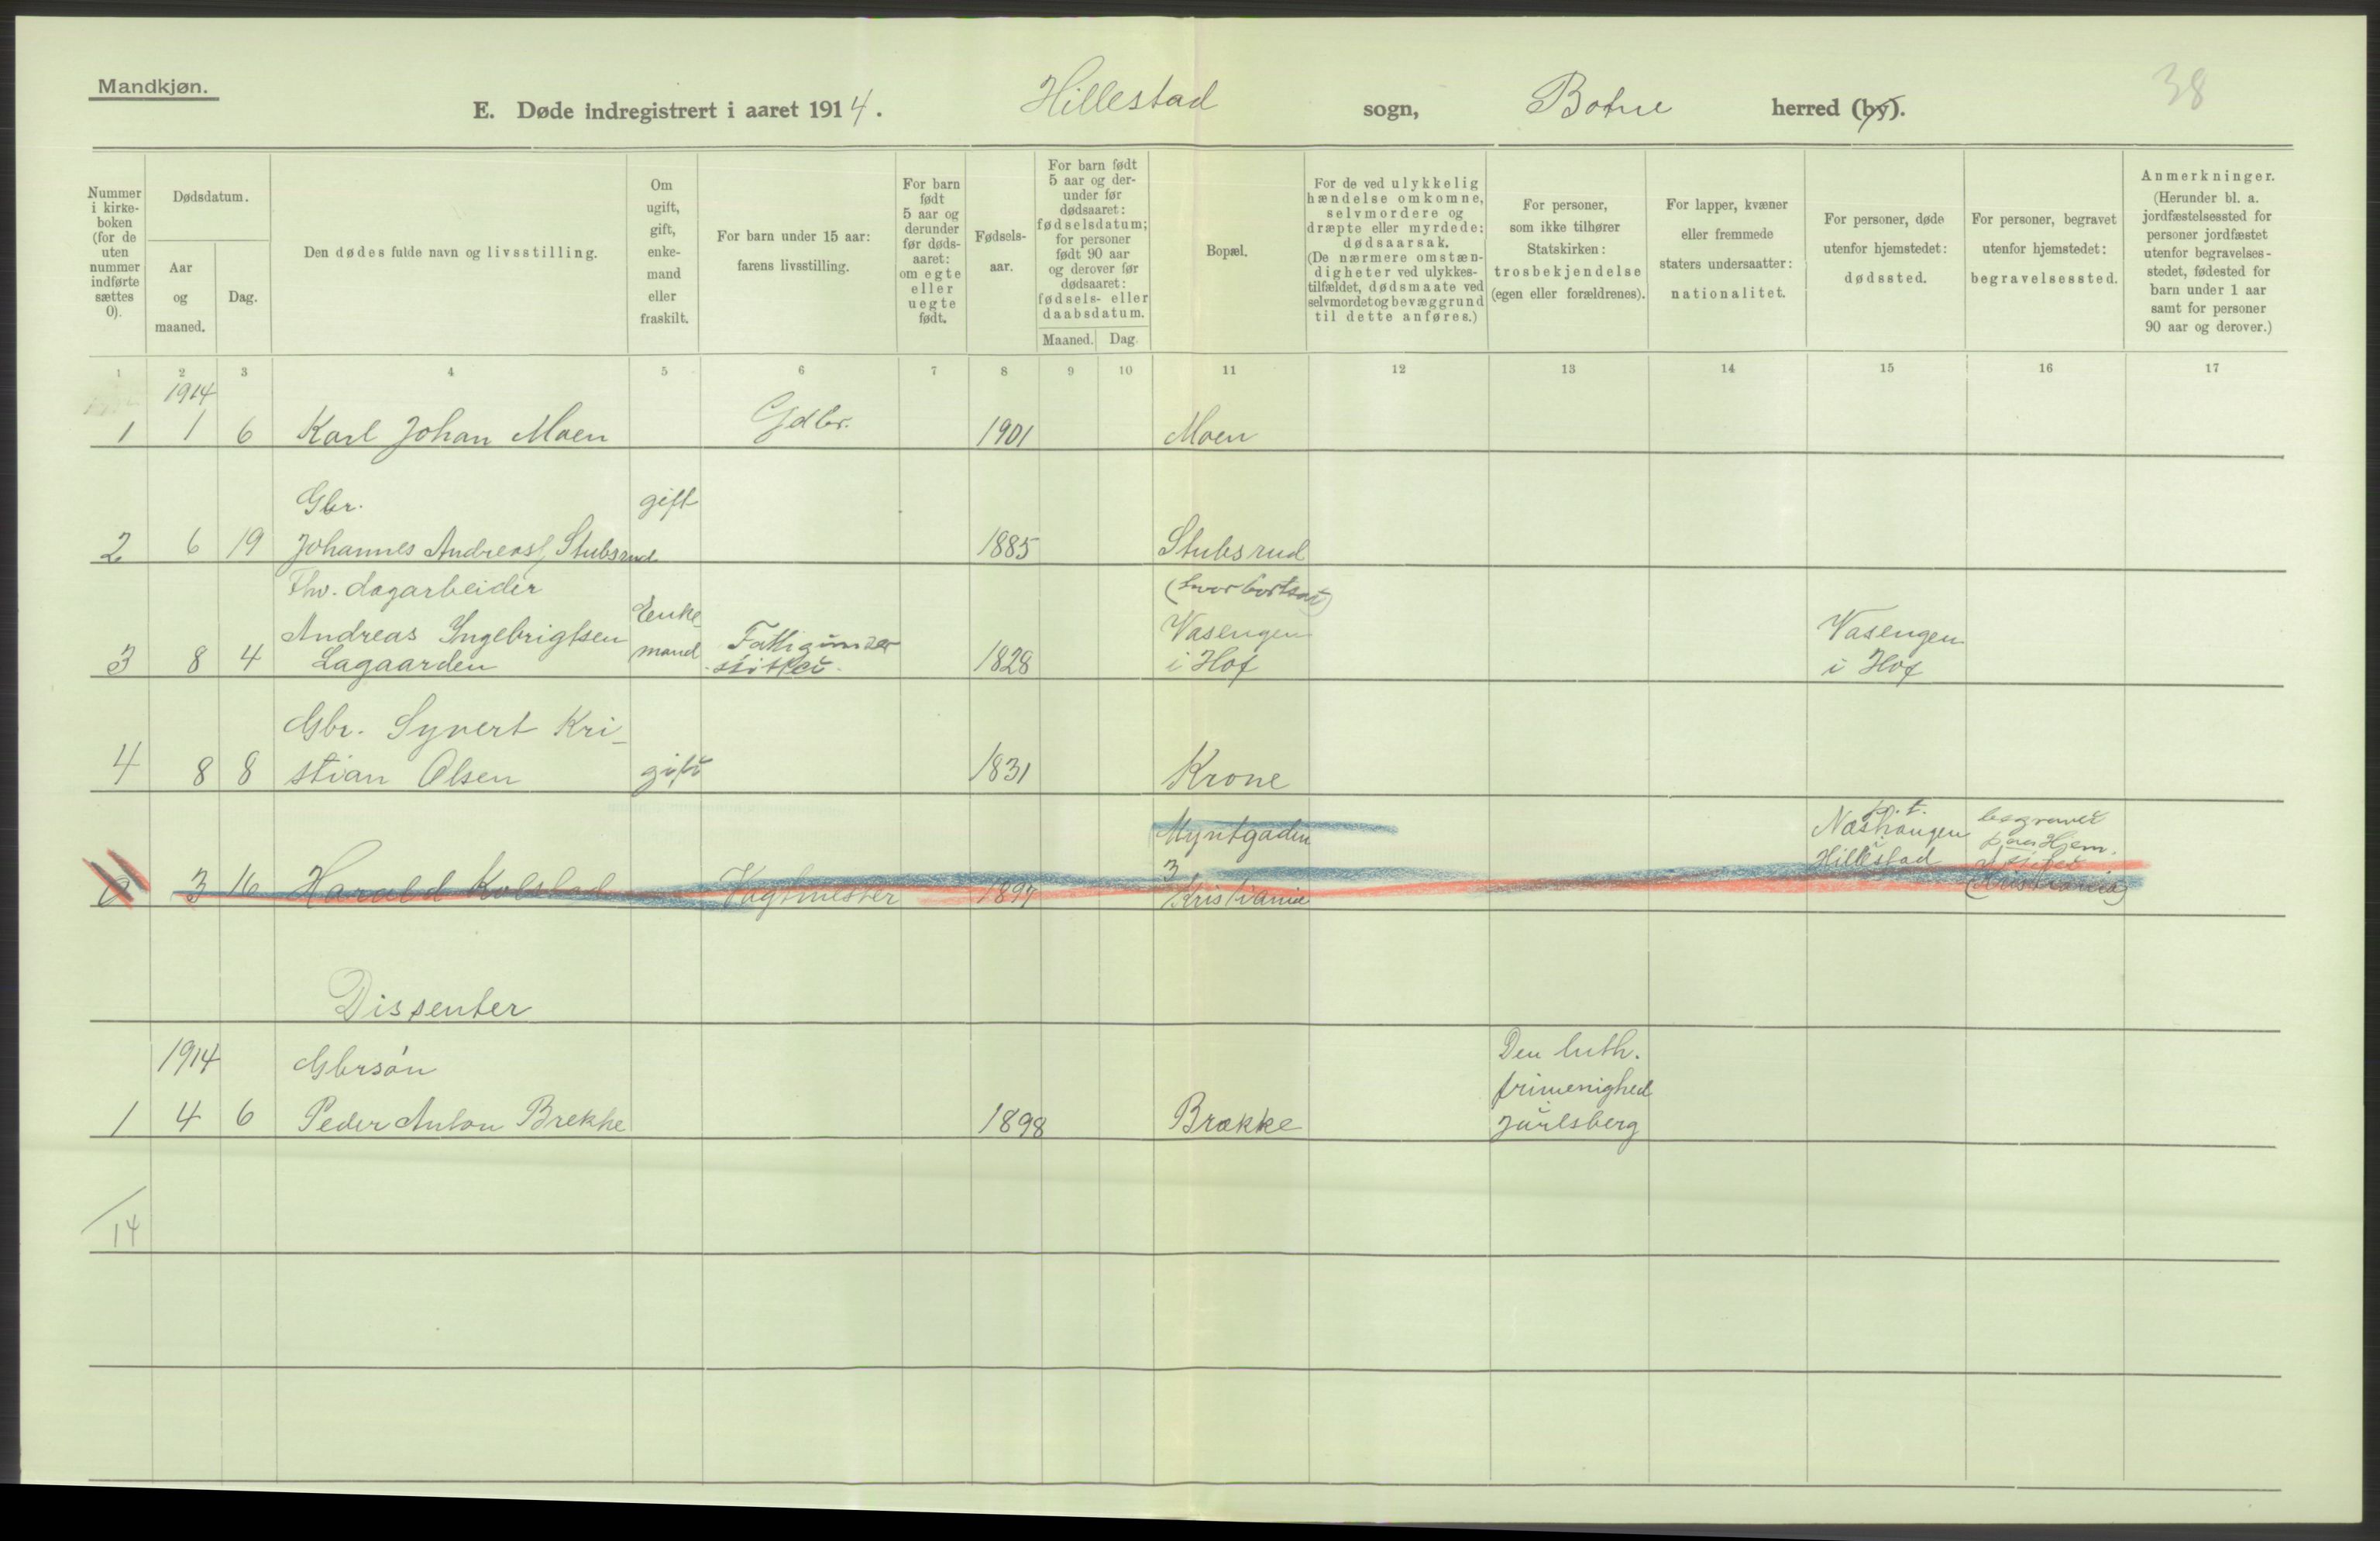 Mandkjøn.
E. Døde indregistrert i aaret 1914. Hillestad sogn, Botne herred (by).
38
Nummer i kirke- boken (for de uten nummer indførte sættes 0).
Dødsdatum.
Aar og maaned.
Dag.
Den dødes fulde navn og livsstilling.
Om ugift, gift, enke- mand eller fraskilt.
For barn under 15 aar: farens livsstilling.
For barn født 5 aar og derunder før døds- aaret: om egte eller uegte født.
Fødsels- aar.
For barn født 5 aar og der- under før dødsaaret: fødselsdatum; for personer født 90 aar og derover før dødsaaret: fødsels- eller daabsdatum.
Maaned. Dag.
Bopæl.
For de ved ulykkelig hændelse omkomne, selvmordere og dræpte eller myrdede: dødsaarsak. (De nærmere omstæn- digheter ved ulykkes- tilfældet, dødsmaate ved selvmordet og bevæggrund til dette anføres.)
For personer, som ikke tilhører Statskirken: trosbekjendelse (egen eller forældrenes).
For lapper, kvæner eller fremmede staters undersaatter: nationalitet.
For personer, døde utenfor hjemstedet: dødssted.
For personer, begravet utenfor hjemstedet: begravelsessted.
Anmerkninger. (Herunder bl. a. jordfæstelsessted for personer jordfæstet utenfor begravelses- stedet, fødested for barn under 1 aar samt for personer 90 aar og derover.)
1 2 3 4 5 6 7 8 9 10 11 12 13 14 15 16 17
1914
1 1 6 Karl Johan Moen Gdbr. 1901 Moen
Gbr. gift
2 6 19 Johannes Andreas Stubsrud 1885 Stubsrud
Fhv. dagarbeider (hvor bortsat)
Andreas Ingebrigtsen Enke- Fattigunder Vasengen Vasengen
3 8 4 Lagaarden mand støttet. 1828 i Hof i Hof
Gbr. Syvert Kri-
4 8 8 stian Olsen gift 1831 Krone
Myntgaden p.t. Næshaugen begravet
3 i Hillestad paa Hjem-
0 3 16 Harald Kolstad Vagtmester 1897 Kristiania stedet (Kristiania)
Dissenter
1914 Gbrsøn Den luth.
frimenighed
1 4 6 Peder Anton Brekke 1898 Brække Jarlsberg
/14